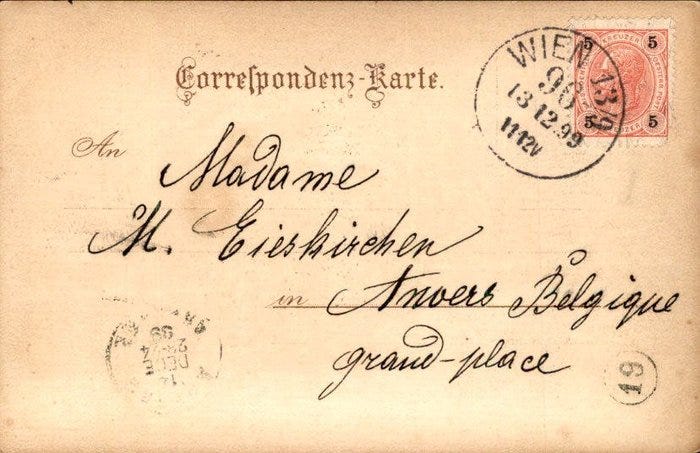 Correspondenz-Karte.
WIEN 13/9
96
13.12.99
11.12V
5 KREUZER 5
5 5
An
Madame
M. Eieskirchen
in Anvers Belgique
grand-place
19
14
DEC
99